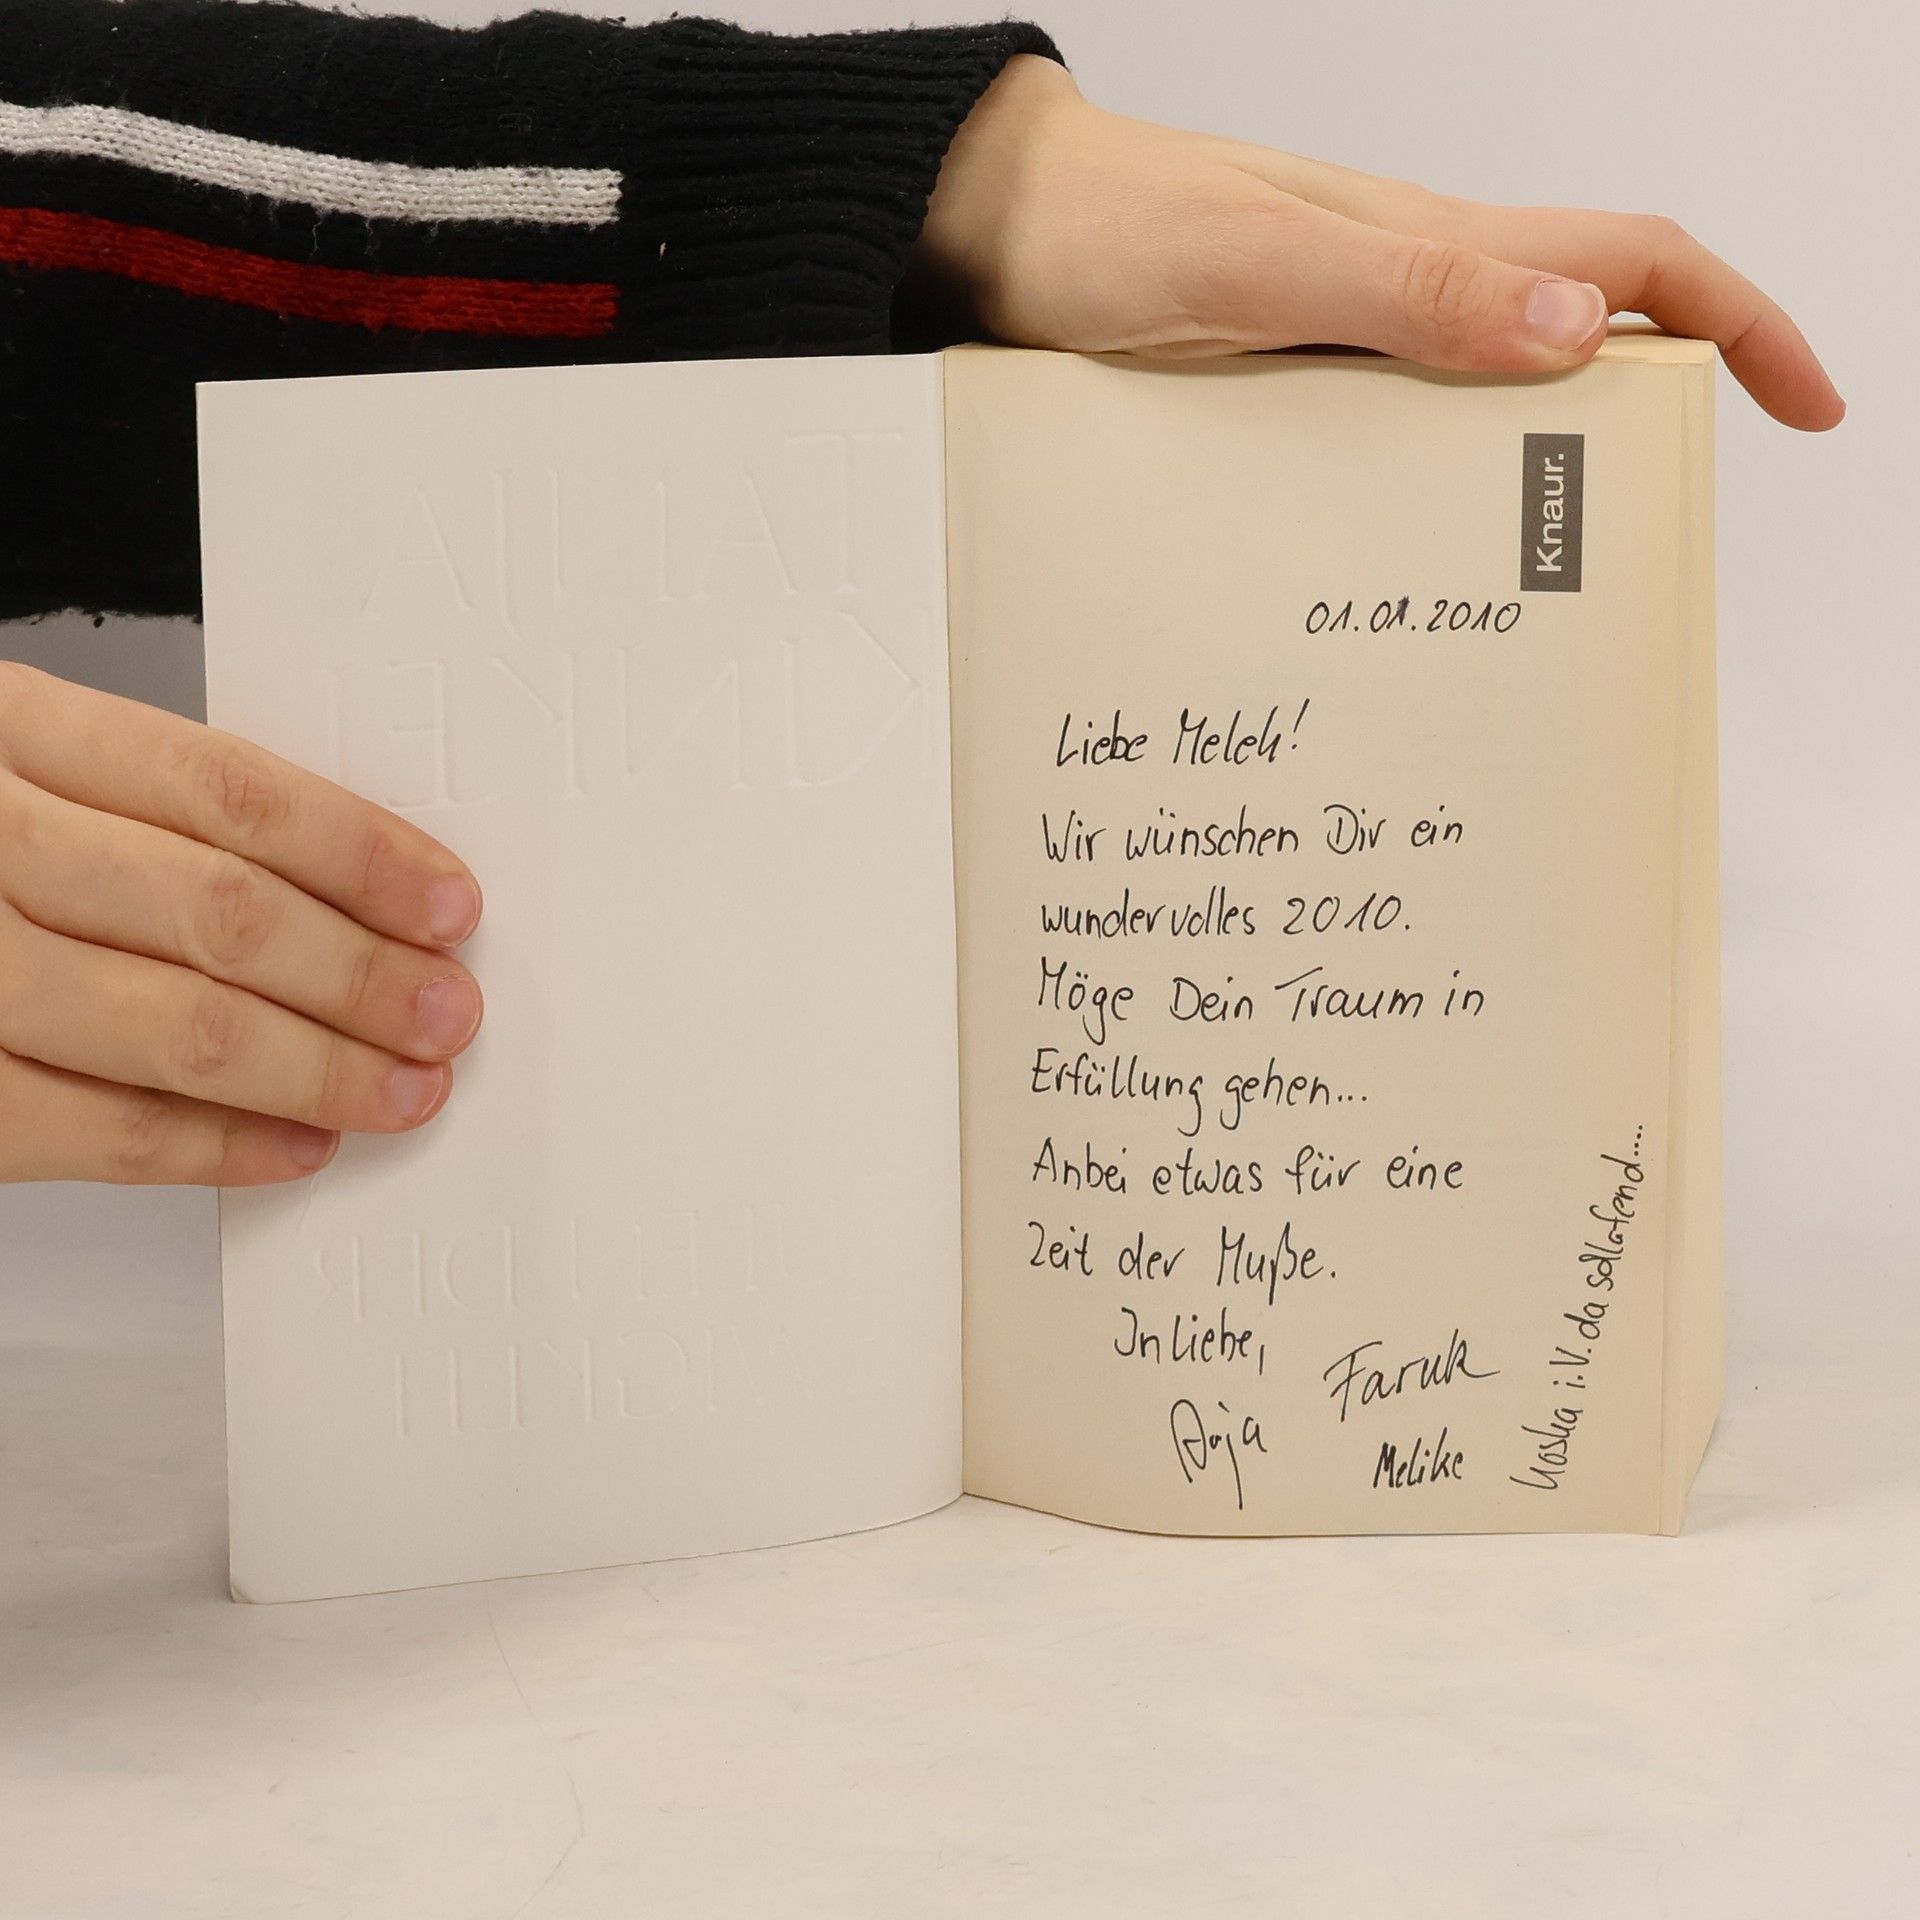 TANJA
KINKEL
Knaur.
01.01.2010
Liebe Melek!
Wir wünschen Dir ein
wundervolles 2010.
Möge Dein Traum in
Erfüllung gehen...
Anbei etwas für eine
Zeit der Muße.
In Liebe,
Faruk
Melike
i.V. da schlafend....